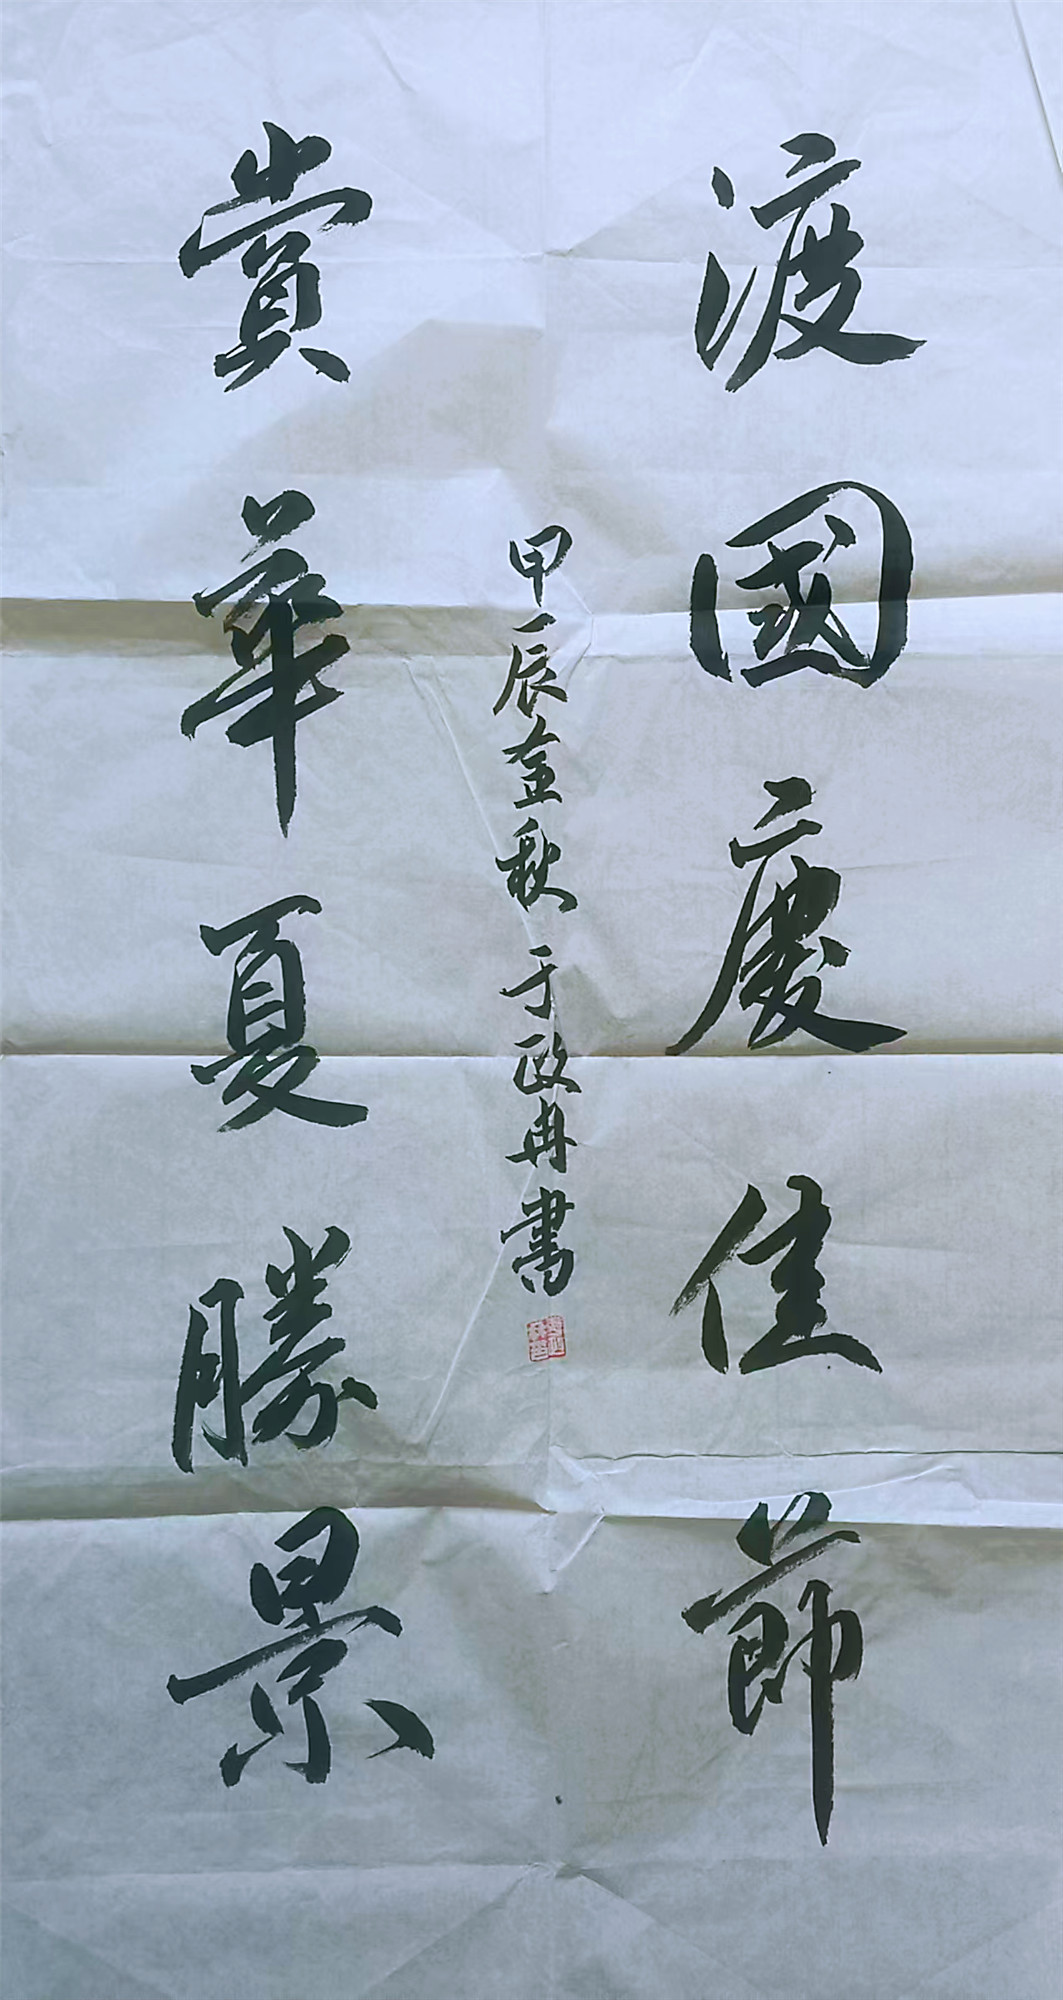 渡國慶佳節
賞華夏勝景
甲辰金秋于政冉書